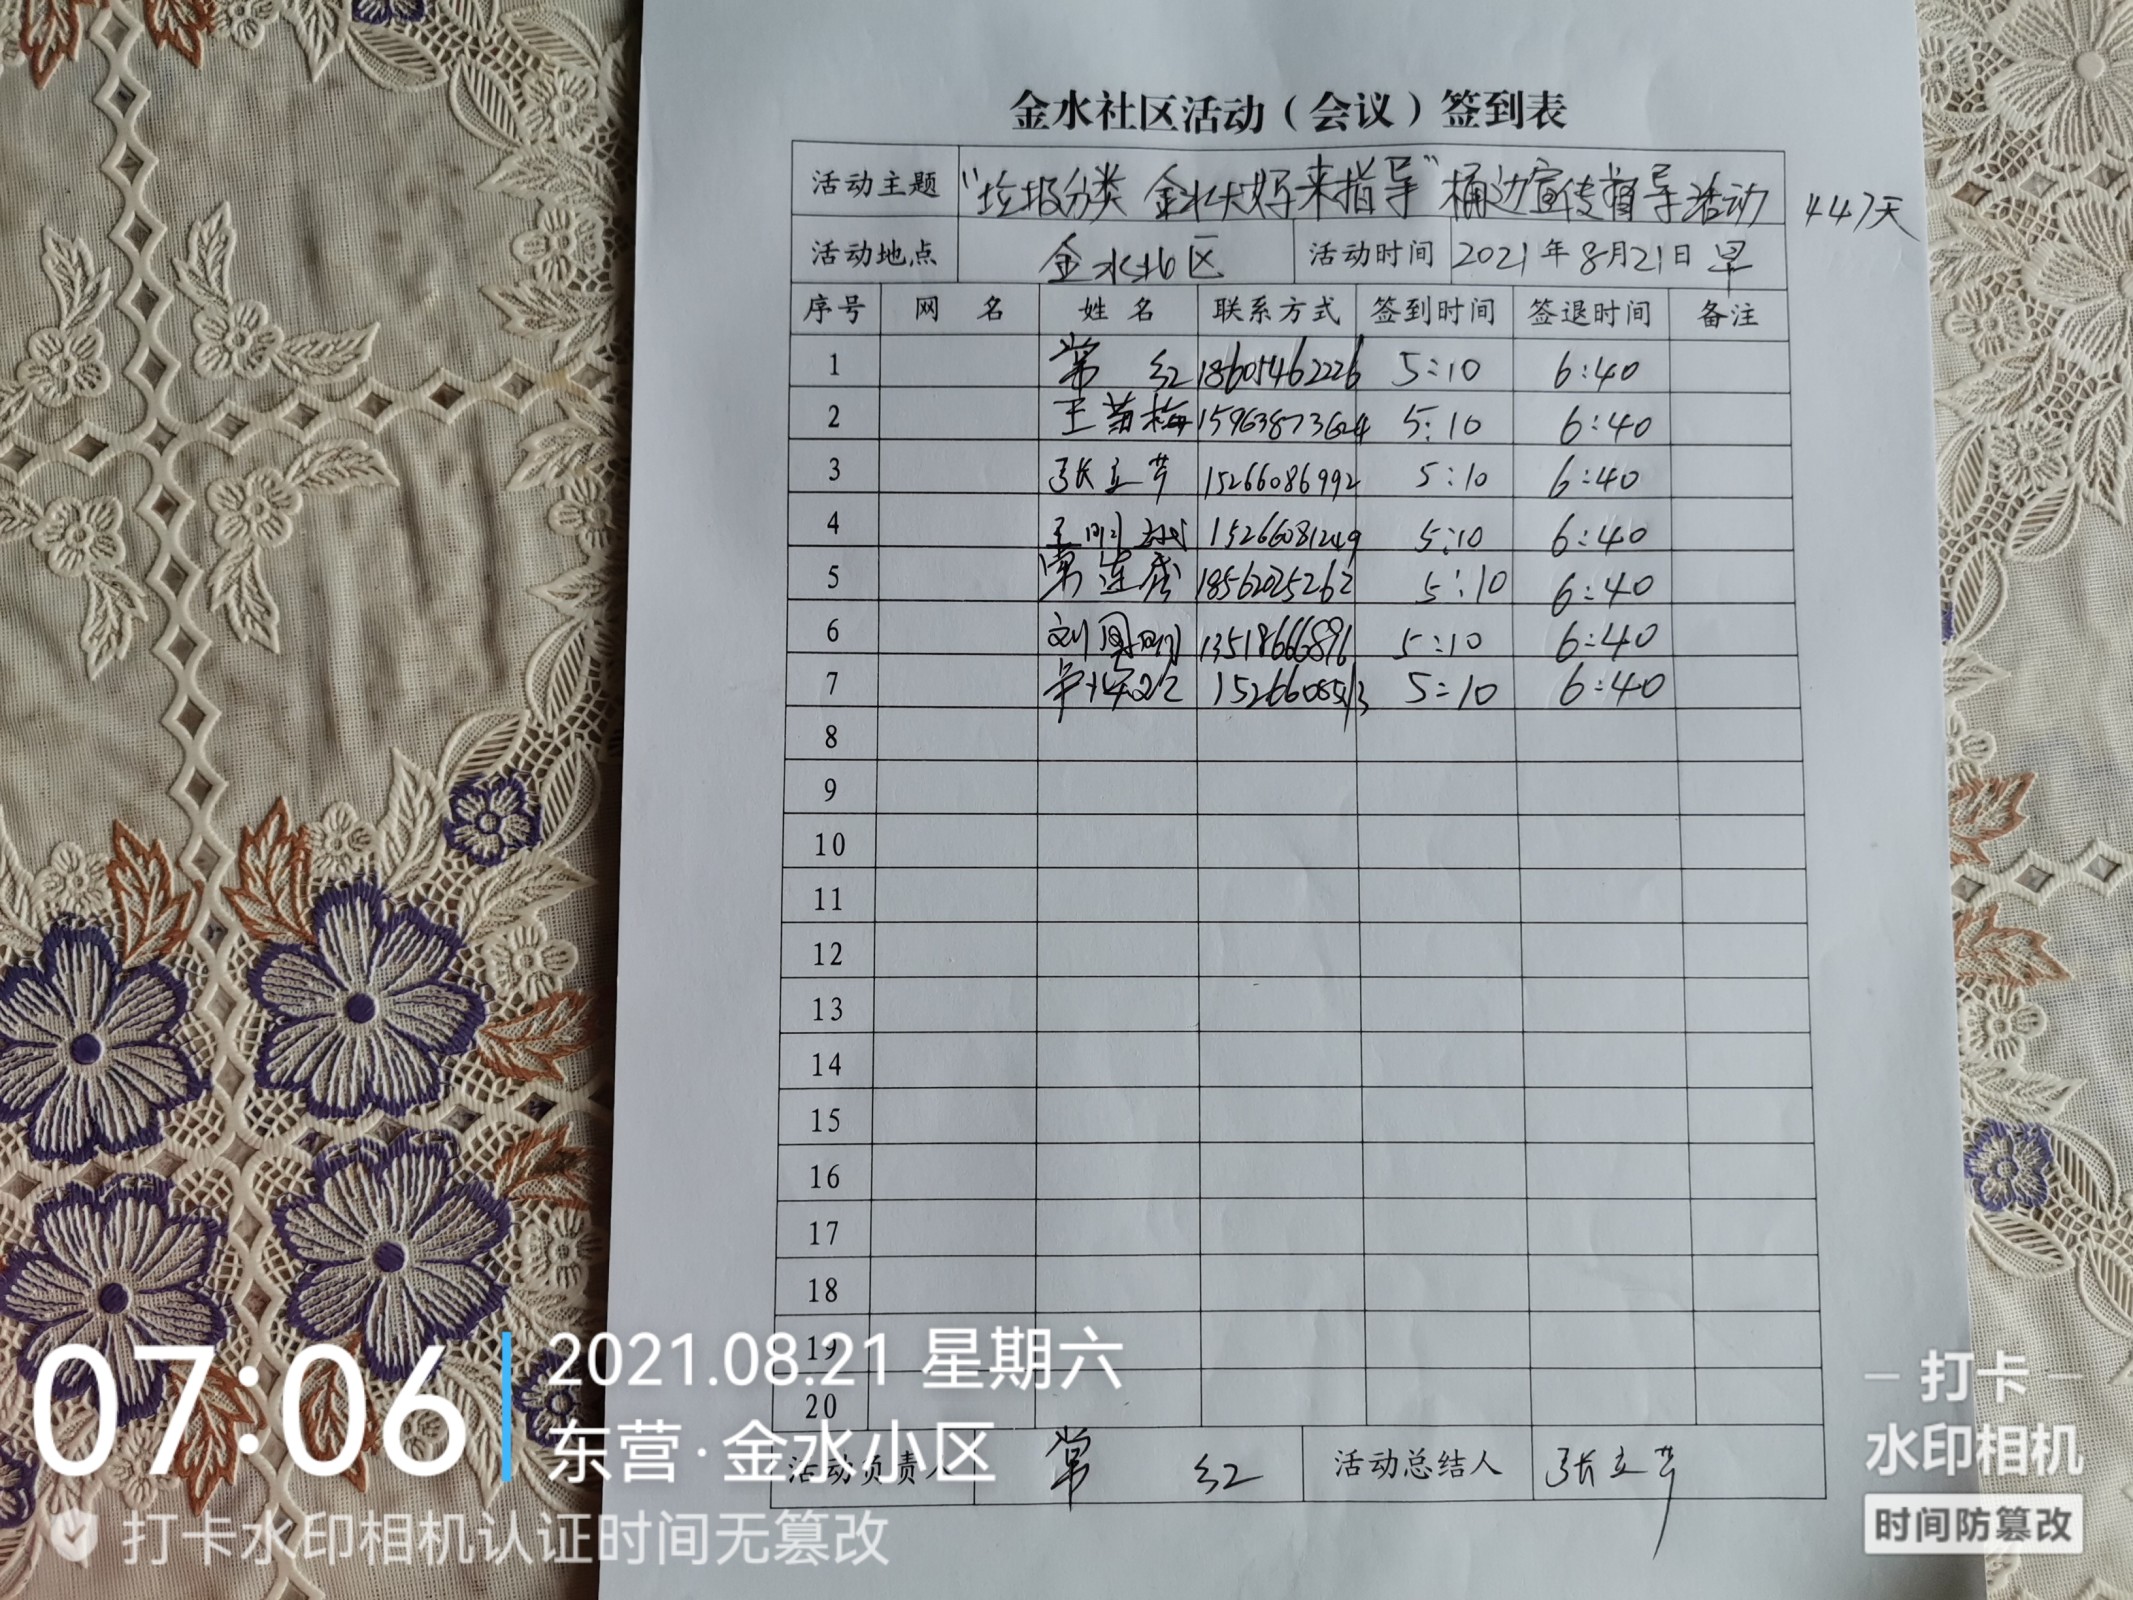 金水社区活动（会议）签到表
活动主题 “垃圾分类 金水大妈来指导”桶边宣传督导活动 447天
活动地点 金水北区 活动时间 2021年8月21日 早
序号 网 名 姓 名 联系方式 签到时间 签退时间 备注
1 常 红 18605462226 5:10 6:40
2 王菊梅 15963873624 5:10 6:40
3 张立芹 15266086992 5:10 6:40
4 王明 15266081249 5:10 6:40
5 常连 18562025262 5:10 6:40
6 刘凤明 13518666896 5:10 6:40
7 5:10 6:40
8
9
10
11
12
13
14
15
16
17
18
19
20
活动负责人 常 红 活动总结人 张立芹
07:06
2021.08.21 星期六
东营·金水小区
打卡水印相机认证时间无篡改
打卡
水印相机
时间防篡改